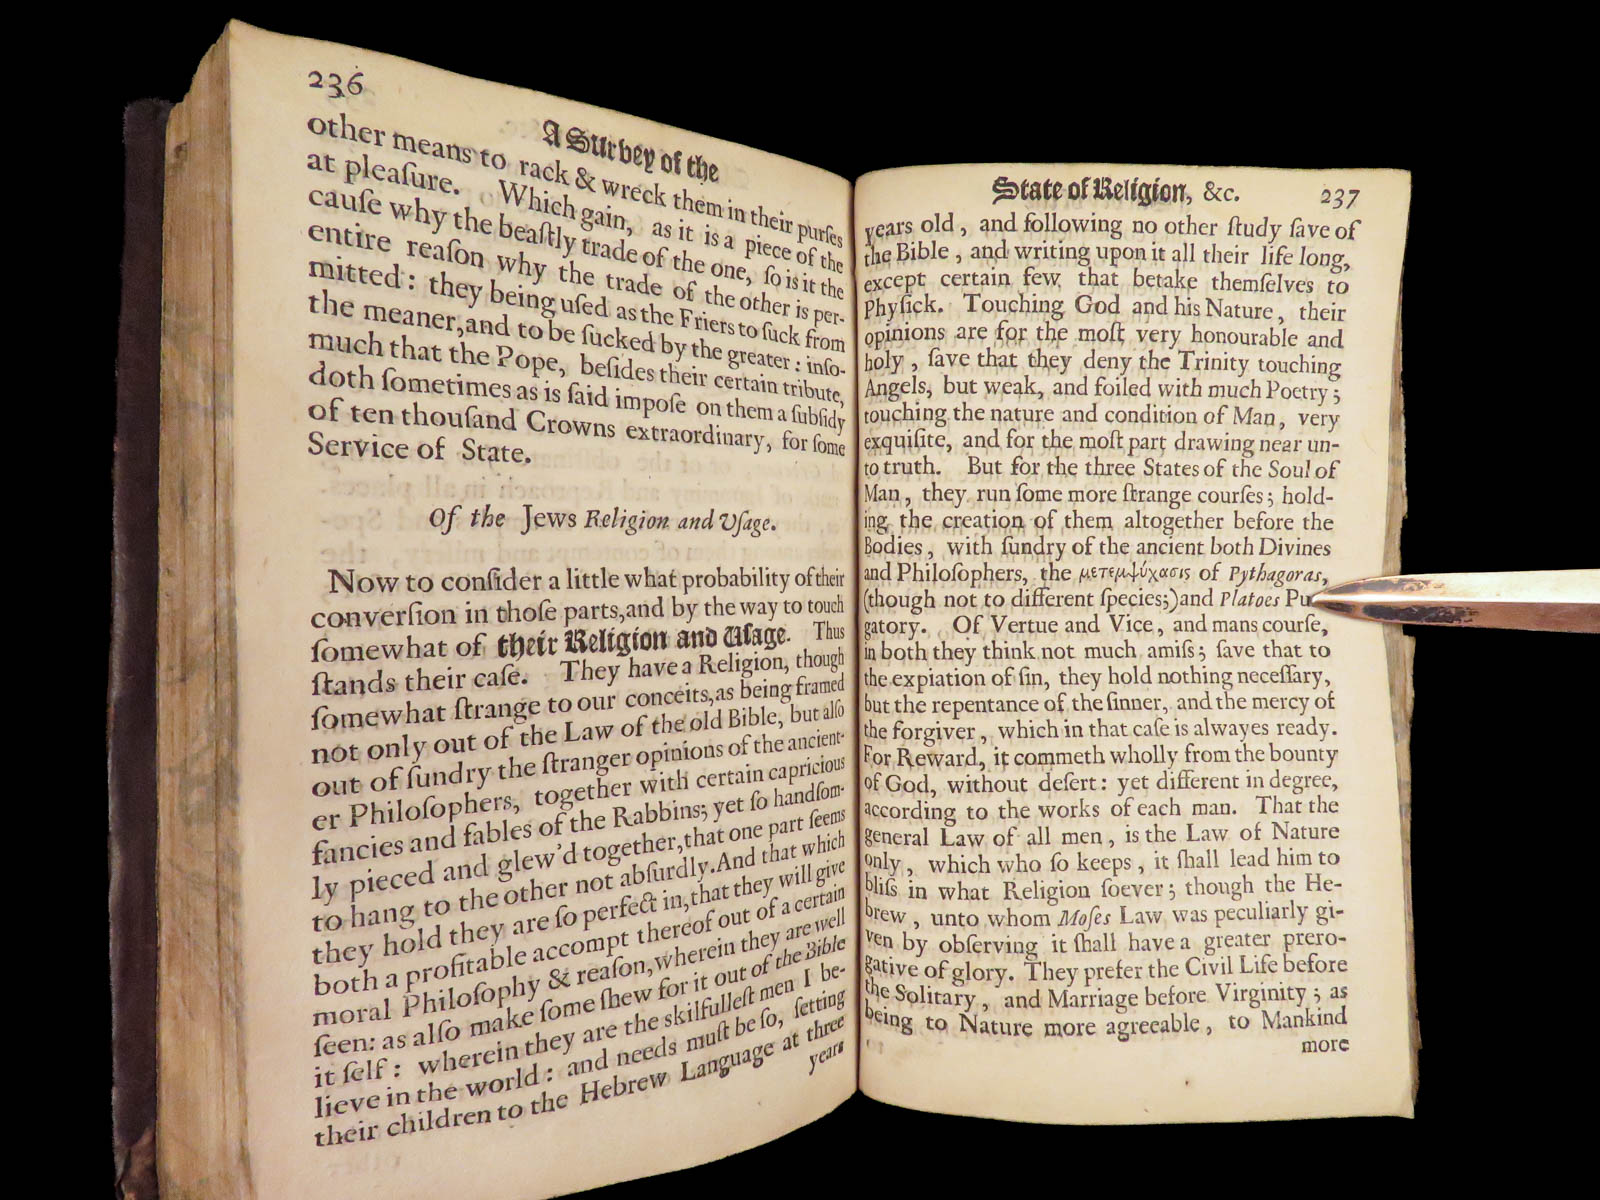 236
A Survey of the
other means to rack & wreck them in their purſes
at pleaſure. Which gain, as it is a piece of the
cauſe why the beaſtly trade of the one, ſo is it the
entire reaſon why the trade of the other is per-
mitted: they being uſed as the Friers to ſuck from
the meaner, and to be ſucked by the greater: inſo-
much that the Pope, beſides their certain tribute,
doth ſometimes as is ſaid impoſe on them a ſubſidy
of ten thouſand Crowns extraordinary, for ſome
Service of State.
Of the Jews Religion and Uſage.
Now to conſider a little what probability of their
converſion in thoſe parts, and by the way to touch
ſomewhat of their Religion and Uſage. Thus
ſtands their caſe. They have a Religion, though
ſomewhat ſtrange to our conceits, as being framed
not only out of the Law of the old Bible, but alſo
out of ſundry the ſtranger opinions of the ancient-
er Philoſophers, together with certain capricious
fancies and fables of the Rabbins; yet ſo handſom-
ly pieced and glew'd together, that one part ſeems
to hang to the other not abſurdly. And that which
they hold they are ſo perfect in, that they will give
both a profitable accompt thereof out of a certain
moral Philoſophy & reaſon, wherein they are well
ſeen: as alſo make ſome ſhew for it out of the Bible
it ſelf: wherein they are the skilfulleſt men I be-
lieve in the world: and needs muſt be ſo, ſetting
their children to the Hebrew Language at three
years
State of Religion, &c. 237
years old, and following no other ſtudy ſave of
the Bible, and writing upon it all their life long,
except certain few that betake themſelves to
Phyſick. Touching God and his Nature, their
opinions are for the moſt very honourable and
holy, ſave that they deny the Trinity touching
Angels, but weak, and foiled with much Poetry;
touching the nature and condition of Man, very
exquiſite, and for the moſt part drawing near un-
to truth. But for the three States of the Soul of
Man, they run ſome more ſtrange courſes; hold-
ing the creation of them altogether before the
Bodies, with ſundry of the ancient both Divines
and Philoſophers, the μετεμψύχασις of Pythagoras,
(though not to different ſpecies;) and Platoes Pu
gatory. Of Vertue and Vice, and mans courſe,
in both they think not much amiſs; ſave that to
the expiation of ſin, they hold nothing neceſſary,
but the repentance of the ſinner, and the mercy of
the forgiver, which in that caſe is alwayes ready.
For Reward, it commeth wholly from the bounty
of God, without deſert: yet different in degree,
according to the works of each man. That the
general Law of all men, is the Law of Nature
only, which who ſo keeps, it ſhall lead him to
bliſs in what Religion ſoever; though the He-
brew, unto whom Moſes Law was peculiarly gi-
ven by obſerving it ſhall have a greater prero-
gative of glory. They prefer the Civil Life before
the Solitary, and Marriage before Virginity; as
being to Nature more agreeable, to Mankind
more